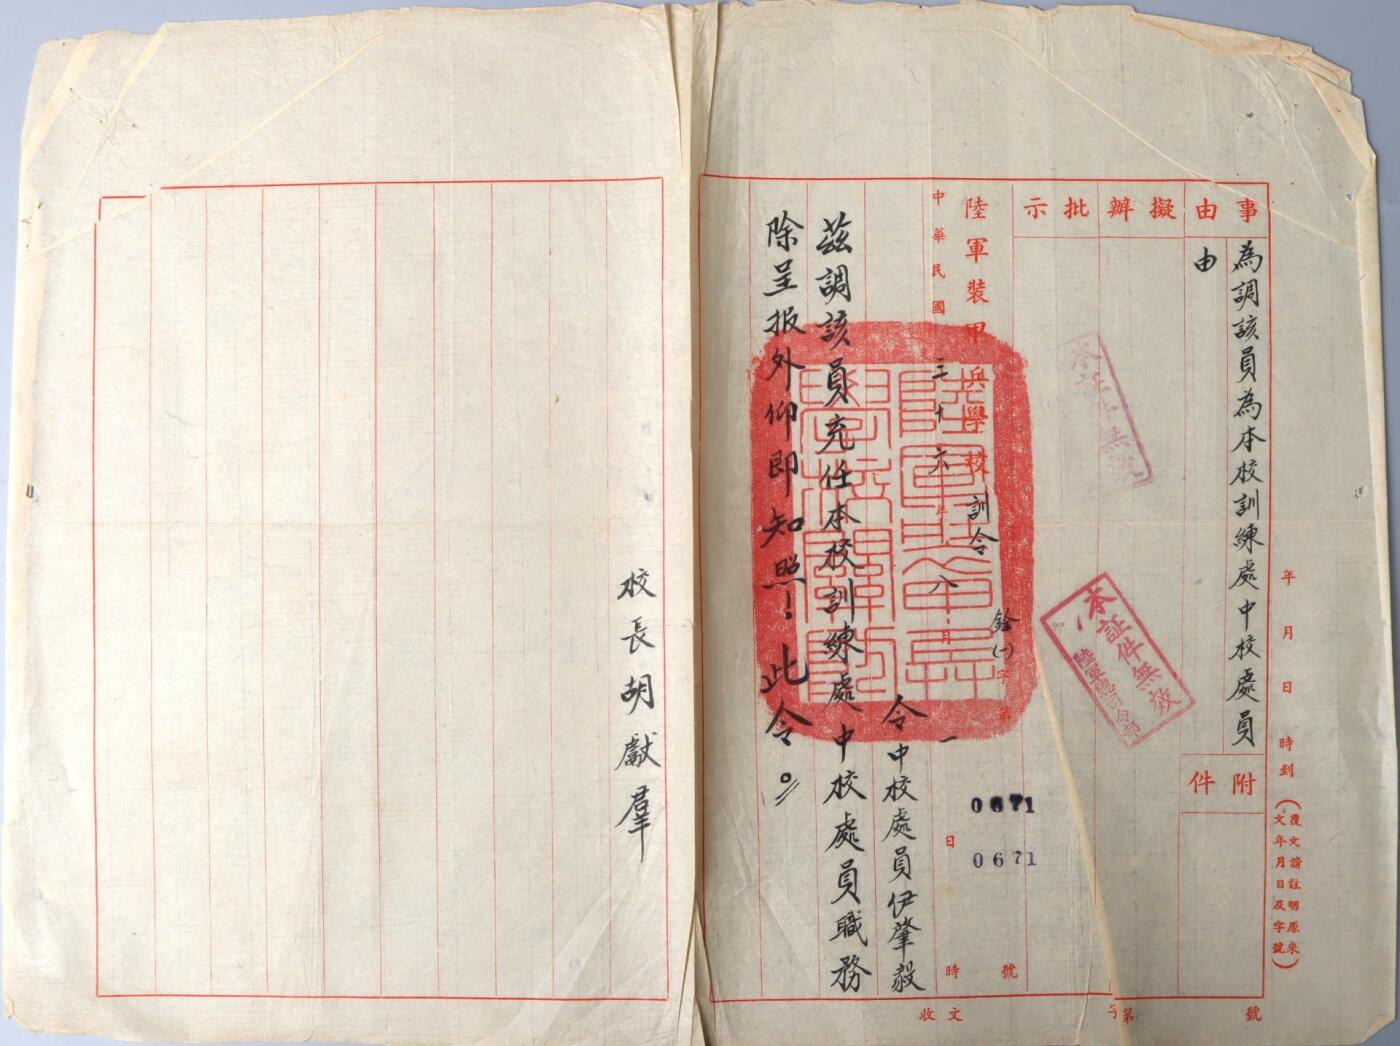 事由
為調該員為本校訓練處中校處員
由
附件
擬辦
批示
年 月 日 時到
(覆文請註明原來
文年月日及字號)
本証件無效
本証件無效
陸軍總司令部
陸軍裝甲兵學校訓令
銓(一)字第
0671
0671
號
中華民國三十六年八月一日 時
令中校處員伊肇毅
茲調該員充任本校訓練處中校處員職務
除呈报外仰即知照!此令。
陸軍裝甲兵
學校關防
校長胡獻羣
收文 字第 號